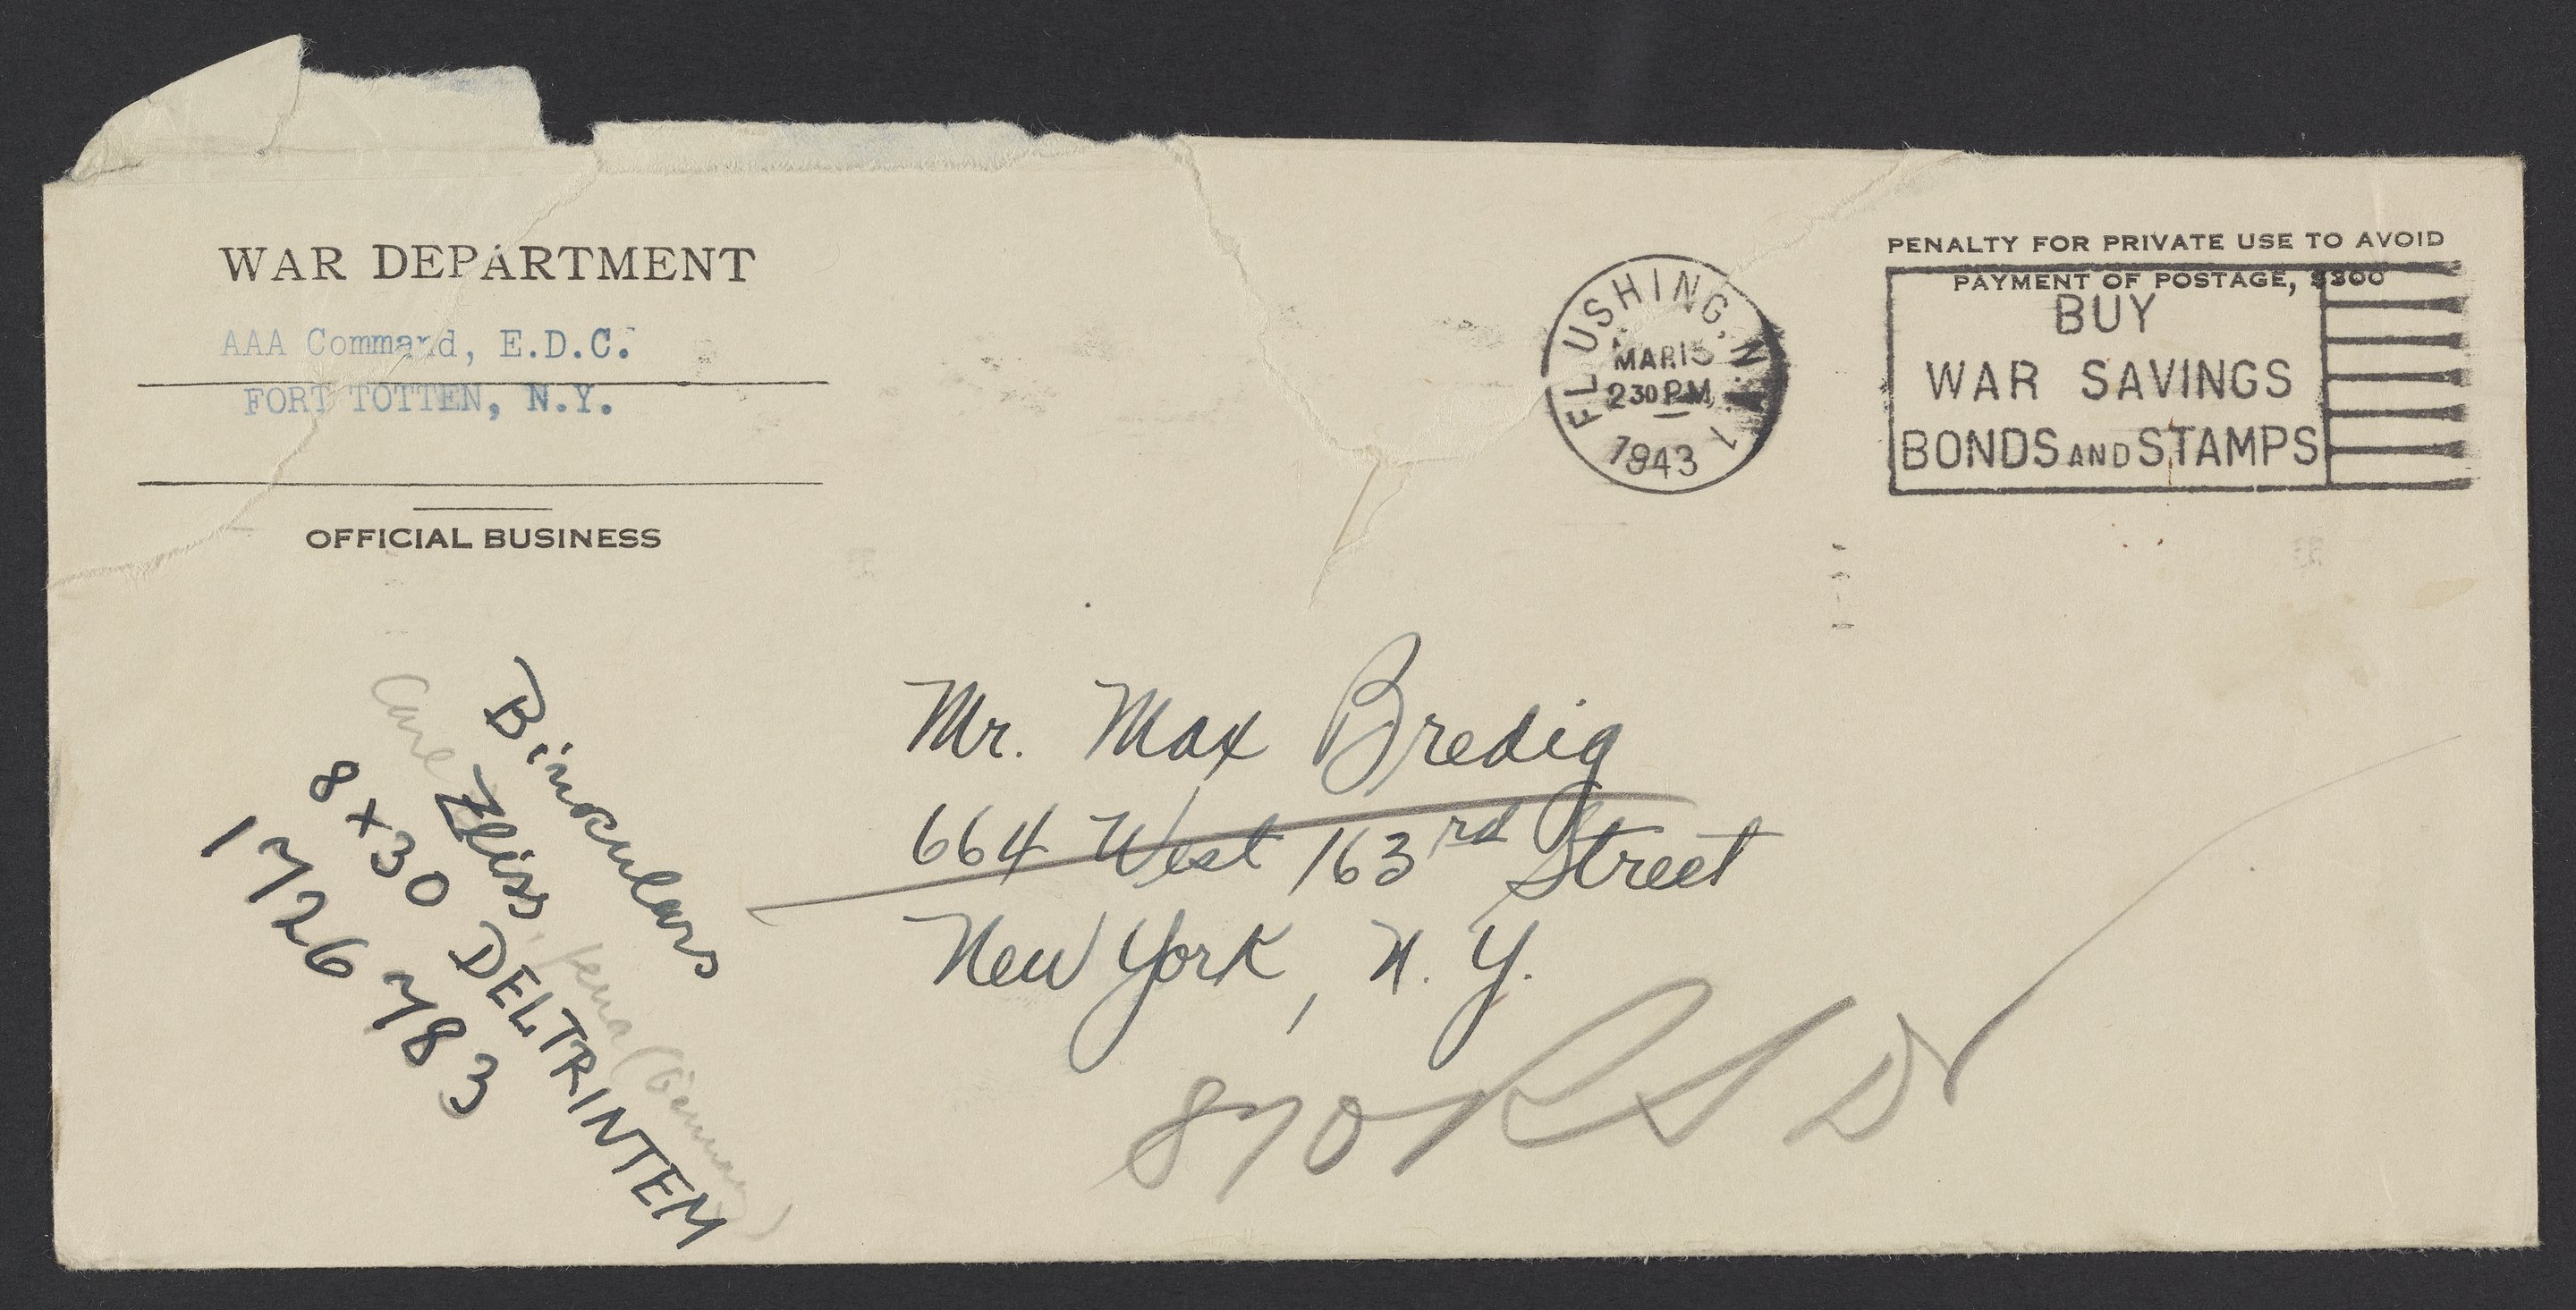 WAR DEPARTMENT
AAA Command, E.D.C.
FORT TOTTEN, N.Y.
OFFICIAL BUSINESS
FLUSHING, N.Y. 1
MAR 15
2 30 PM
1943
PENALTY FOR PRIVATE USE TO AVOID
PAYMENT OF POSTAGE, $300
BUY
WAR SAVINGS
BONDS AND STAMPS
Mr. Max Bredig
664 West 163rd Street
New York, N. Y.
Binoculars
Zeiss, Jena (Germany)
8 x 30 DELTRINTEM
1726783